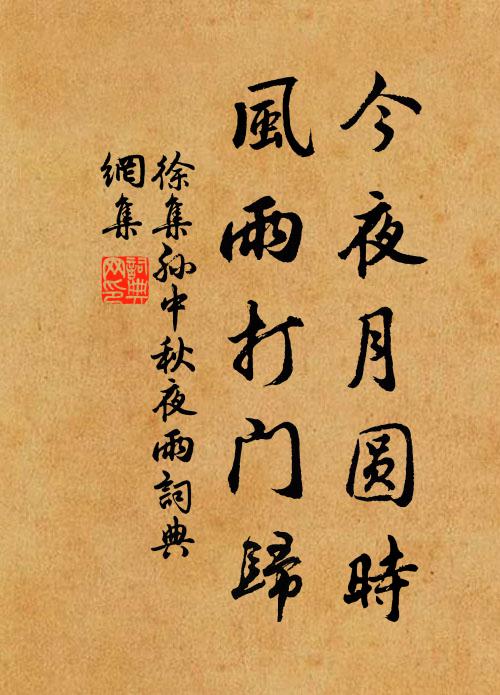 今夜月圆時
風雨打门歸
徐集孙中秋夜雨詞典
網集
詞典
网印